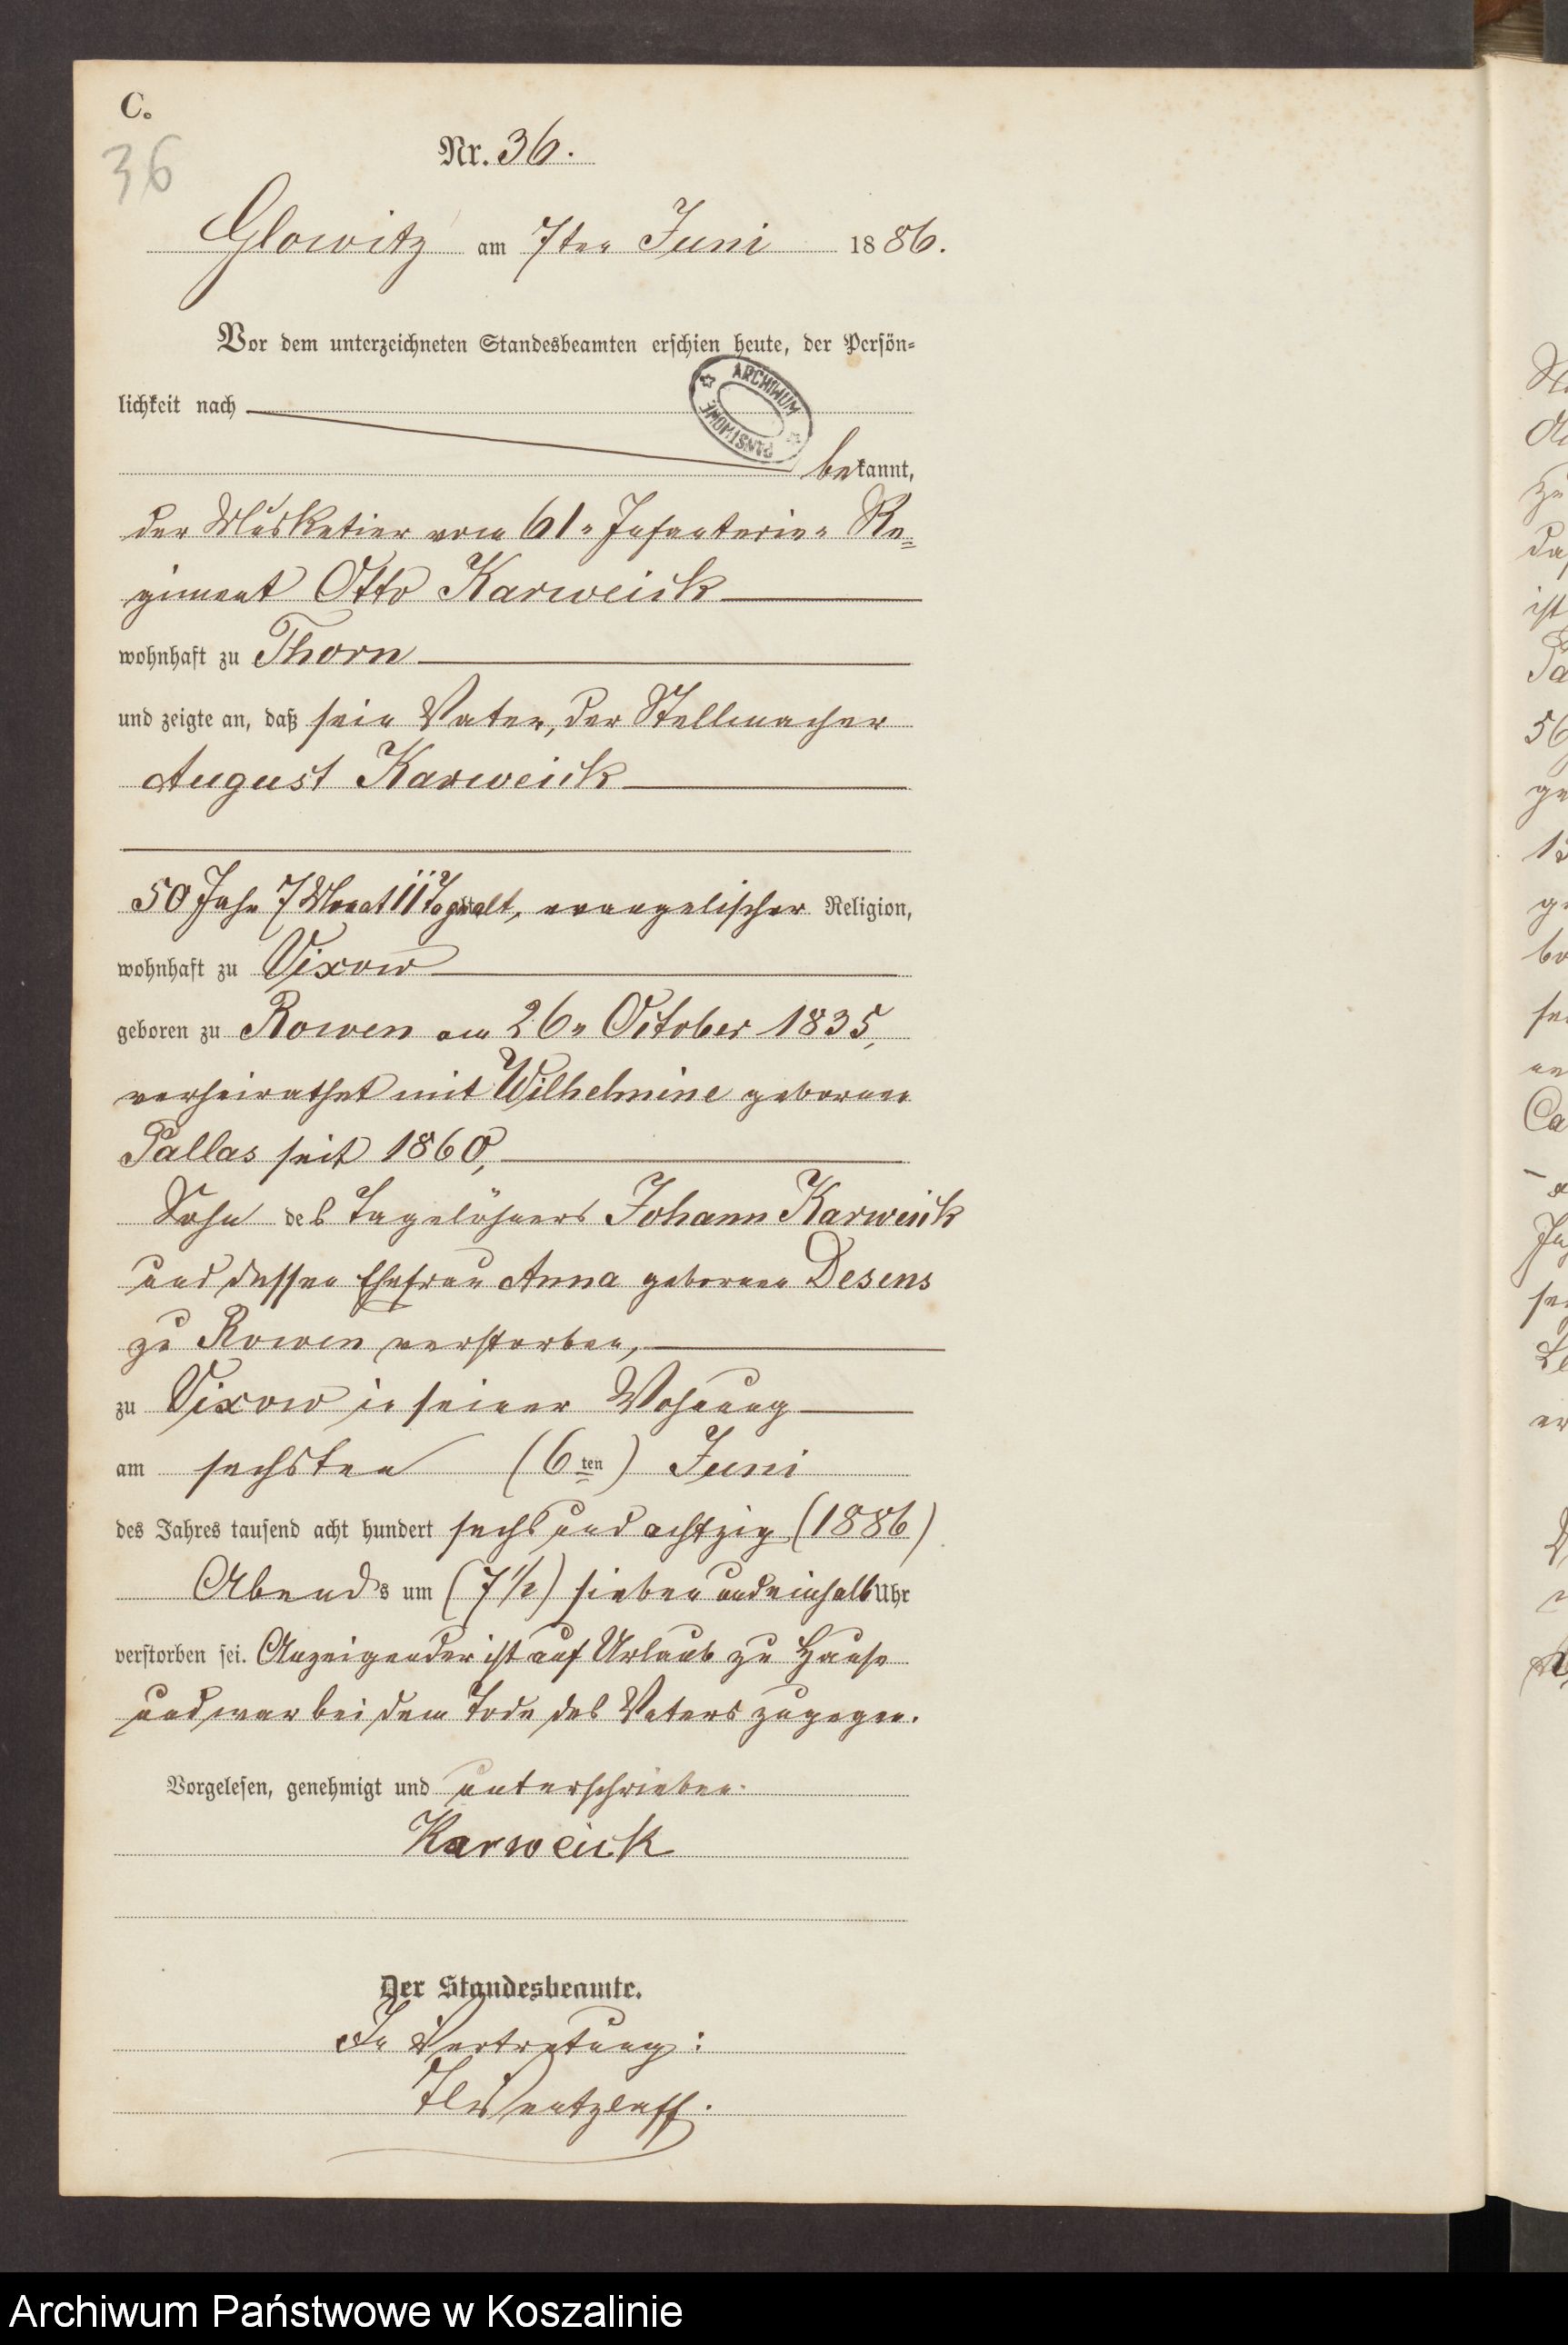 C.
36
Nr. 36.
Glowitz am 7ten Juni 1886.
Vor dem unterzeichneten Standesbeamten erschien heute, der Persön-
lichkeit nach
ARCHIWUM PAŃSTWOWE
bekannt,
der Musketier vom 61n Infanterie- Re-
giment Otto Karweick
wohnhaft zu Thorn
und zeigte an, daß sein Vater, der Stellmacher
August Karweick
50 Jahr 7 Monat 11 Tage alt, evangelischer Religion,
wohnhaft zu Vixow
geboren zu Rowen am 26n October 1835,
verheirathet mit Wilhelmine geborene
Pallas seit 1860,
Sohn des Tagelöhners Johann Karweick
und dessen Ehefrau Anna geborene Desens
zu Rowen verstorben,
zu Vixow in seiner Wohnung
am sechsten (6ten) Juni
des Jahres tausend acht hundert sechs und achtzig (1886)
Abends um (7 1/2) sieben und einhalb Uhr
verstorben sei. Anzeigender ist auf Urlaub zu Hause
und war bei dem Tode des Vaters zugegen.
Vorgelesen, genehmigt und unterschrieben.
Karweick
Der Standesbeamte.
In Vertretung:
Archiwum Państwowe w Koszalinie